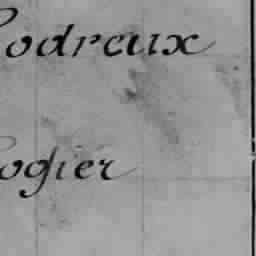 odreux
ogier